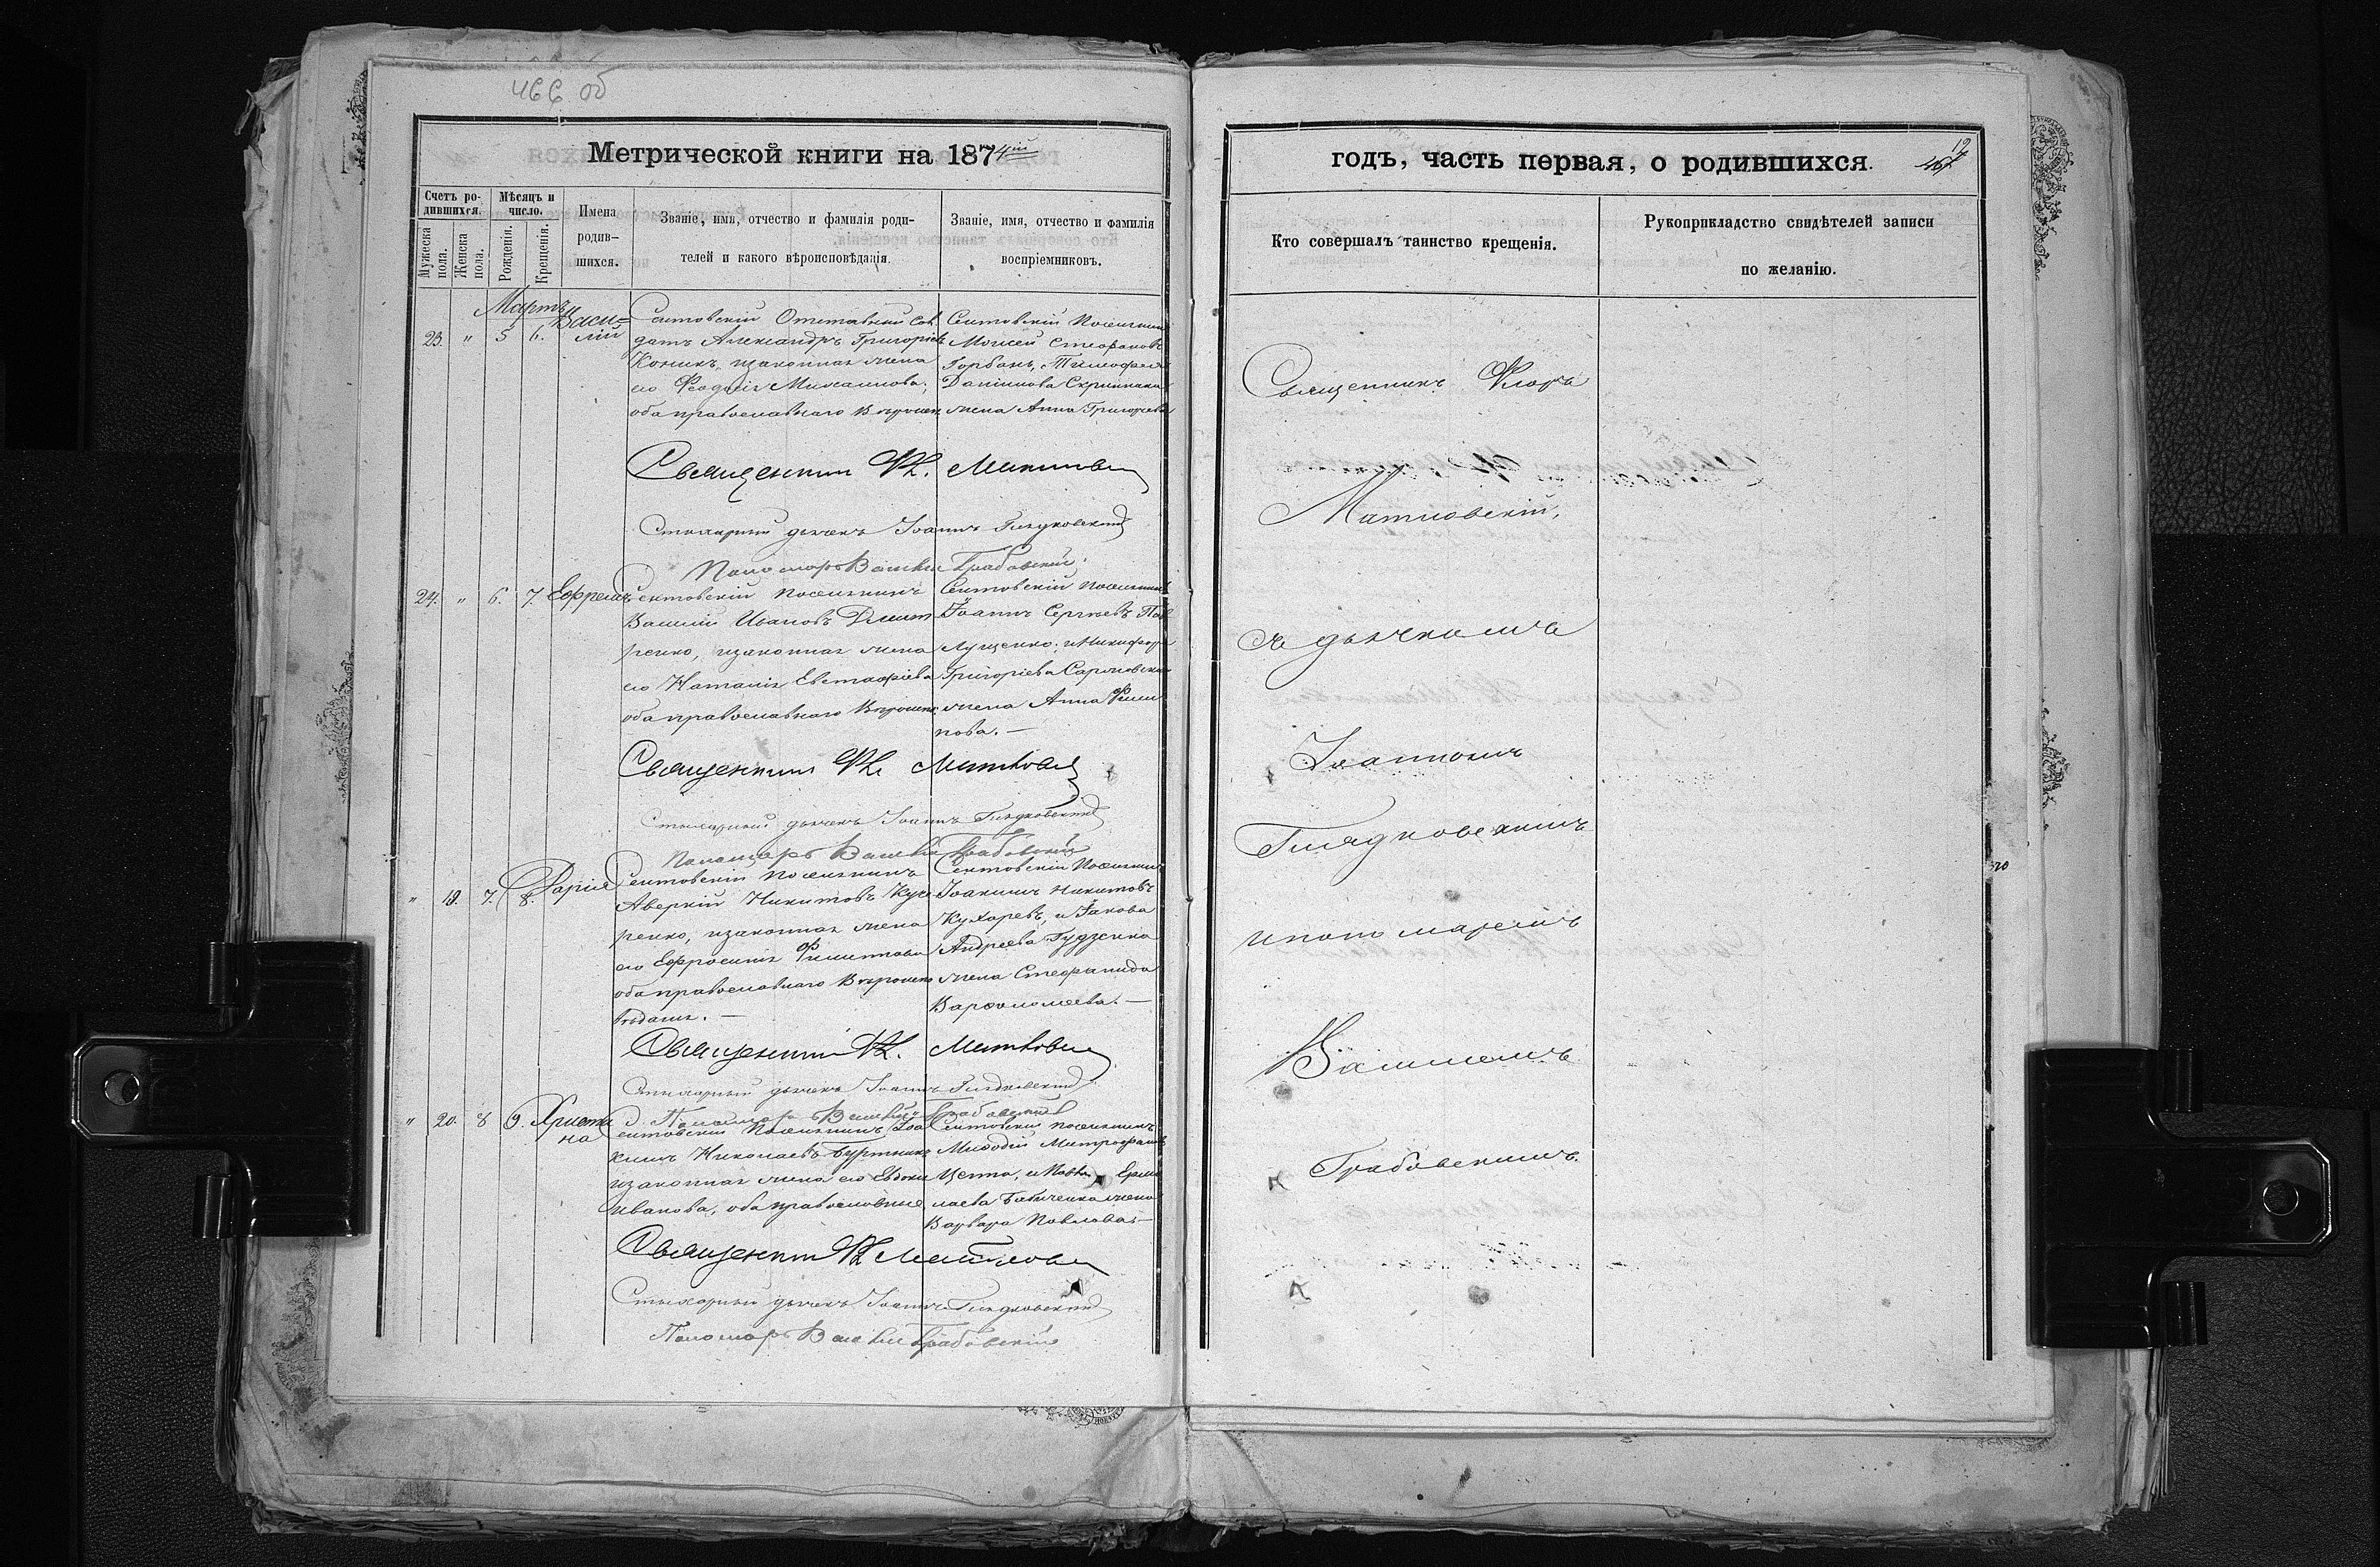 466 об
Метрической книги на 1874ый
Счетъ родившихся.
Мужеска пола.
Женска пола.
Мѣсяцъ и число.
Рожденія.
Крещенія.
Имена родившихся.
Званіе, имя, отчество и фамилія родителей и какого вѣроисповѣданія.
Званіе, имя, отчество и фамилія воспріемниковъ.
Мартъ
23. " 5 6. Васи=
лій
Сентовскій Отставный Сол
датъ Александръ Григоріевъ
изаконная жена
его Феодосія
оба православнаго
Сентовскій Поселянинъ
Моисей Стефановъ
Горбань, Тимофея
Даніилова Скрипника
жена Анна Григорьева
Священникъ Фл.
Стихарный дьячекъ Іоаннъ
Пономарь Василій Грабовскій
24. " 6. 7. Ефремъ
Сентовскій Поселянинъ
Василій Ивановъ Дмит
ренко, изаконная жена
его Наталія Евстафіева
оба православнаго
Сентовскій Поселянинъ
Іоаннъ Сергѣевъ Пав
лущенко, и Никифора
Григоріева
жена Анна Филип
пова. —
Священникъ Фл.
Стихарный дьячекъ Іоаннъ
Пономарь Василій Грабовскій
" 19. 7. 8. Дарія
Сентовскій Поселянинъ
Аверкій Никитовъ Куха
ренко, изаконная жена
его Ефросинія Филиппова
оба православнаго Вѣроиспо
вѣданія. —
Сентовскій Поселянинъ
Іоакимъ Никитовъ
Кухаревъ, и Іакова
Андреева Гудзенка
жена Стефанида
Варфоломеева. —
Священникъ Фл.
Стихарный дьячекъ Іоаннъ
Пономарь Василій Грабовскій
" 20. 8 9. Христи
на
Сентовскій Поселянинъ Іоа
кимъ Николаевъ Буртникъ
изаконная жена его Евдокія
Иванова, оба православные
Сентовскій поселянинъ
Меѳодій Митрофановъ
Цепта, и Павла Ермо
лаева Бабиченка жена
Варвара Павлова. —
Священникъ Фл.
Стихарный дьячекъ Іоаннъ
Пономарь Василій Грабовскій
годъ, часть первая, о родившихся.
12
467
Кто совершалъ таинство крещенія.
Рукоприкладство свидѣтелей записи по желанію.
Священникъ Флоръ
съ дьячкомъ
Іоанномъ
и пономаремъ
Василіемъ
Грабовскимъ.